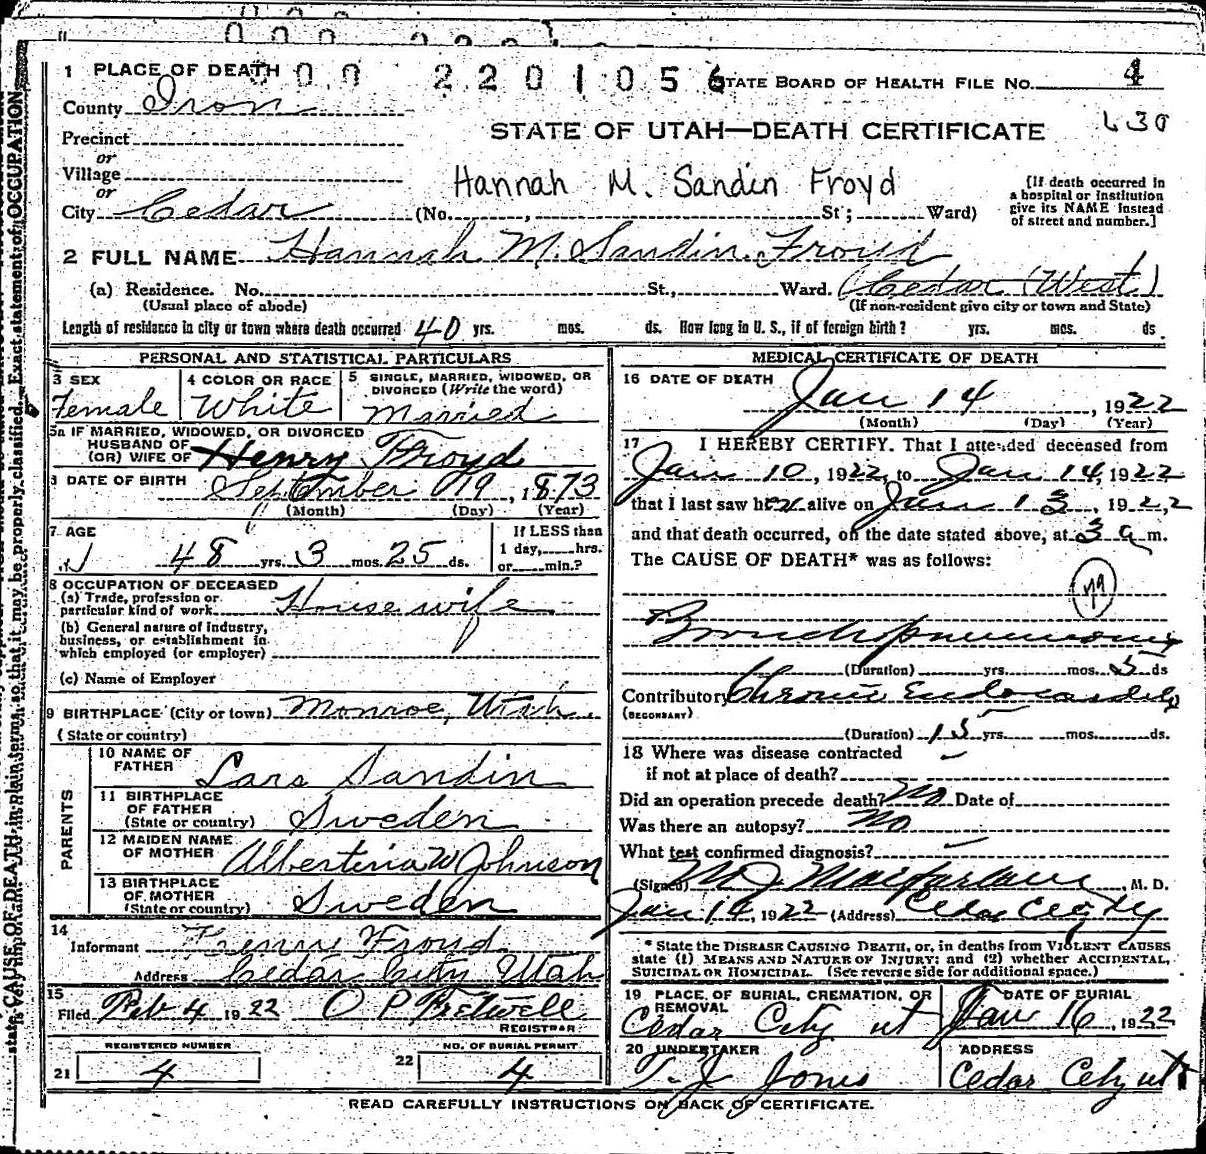 1 PLACE OF DEATH
000 2201056
STATE BOARD OF HEALTH FILE NO. 4
County Iron
STATE OF UTAH—DEATH CERTIFICATE
630
Precinct
or
Village
Hannah M. Sandin Froyd
[If death occurred in a hospital or institution give its NAME instead of street and number.]
or
City Cedar (No. , St; Ward)
2 FULL NAME Hannah M. Sandin Froyd
(a) Residence. No. St., Ward. Cedar (West)
(Usual place of abode) (If non-resident give city or town and State)
Length of residence in city or town where death occurred 40 yrs. mos. ds. How long in U. S., if of foreign birth? yrs. mos. ds
PERSONAL AND STATISTICAL PARTICULARS
3 SEX Female
4 COLOR OR RACE White
5 SINGLE, MARRIED, WIDOWED, OR DIVORCED (Write the word) Married
5a IF MARRIED, WIDOWED, OR DIVORCED
HUSBAND OF
(OR) WIFE OF Henry Froyd
DATE OF BIRTH September 19, 1873
(Month) (Day) (Year)
7 AGE
48 yrs. 3 mos. 25 ds.
If LESS than 1 day, hrs. or min.?
8 OCCUPATION OF DECEASED
(a) Trade, profession or particular kind of work House wife
(b) General nature of industry, business, or establishment in which employed (or employer)
(c) Name of Employer
9 BIRTHPLACE (City or town) Monroe, Utah
(State or country)
PARENTS
10 NAME OF FATHER Lars Sandin
11 BIRTHPLACE OF FATHER (State or country) Sweden
12 MAIDEN NAME OF MOTHER Albertina W Johnson
13 BIRTHPLACE OF MOTHER (State or country) Sweden
14
Informant Henry Froyd
Address Cedar City Utah
15
Filed Feb 4 1922 O P Fretwell
REGISTRAR
REGISTERED NUMBER
21 4
NO. OF BURIAL PERMIT
22 4
MEDICAL CERTIFICATE OF DEATH
16 DATE OF DEATH
Jan 14, 1922
(Month) (Day) (Year)
17 I HEREBY CERTIFY, That I attended deceased from
Jan 10, 1922, to Jan 14, 1922
that I last saw her alive on Jan 13, 1922
and that death occurred, on the date stated above, at 3 a m.
The CAUSE OF DEATH* was as follows:
Bronchopneumonia
(Duration) yrs. mos. 5 ds
Contributory Chronic Endocarditis
(SECONDARY)
(Duration) 15 yrs. mos. ds.
18 Where was disease contracted
if not at place of death?
Did an operation precede death? No Date of
Was there an autopsy? No
What test confirmed diagnosis?
(Signed) M J Macfarlane, M. D.
Jan 14, 1922 (Address) Cedar City
* State the DISEASE CAUSING DEATH, or, in deaths from VIOLENT CAUSES state (1) MEANS AND NATURE OF INJURY; and (2) whether ACCIDENTAL, SUICIDAL OR HOMICIDAL. (See reverse side for additional space.)
19 PLACE OF BURIAL, CREMATION, OR REMOVAL
Cedar City ut
DATE OF BURIAL
Jan 16, 1922
20 UNDERTAKER
T. J Jones
ADDRESS
Cedar City ut
READ CAREFULLY INSTRUCTIONS ON BACK OF CERTIFICATE.
state CAUSE OF DEATH in plain terms, so that it may be properly classified. Exact statement of OCCUPATION